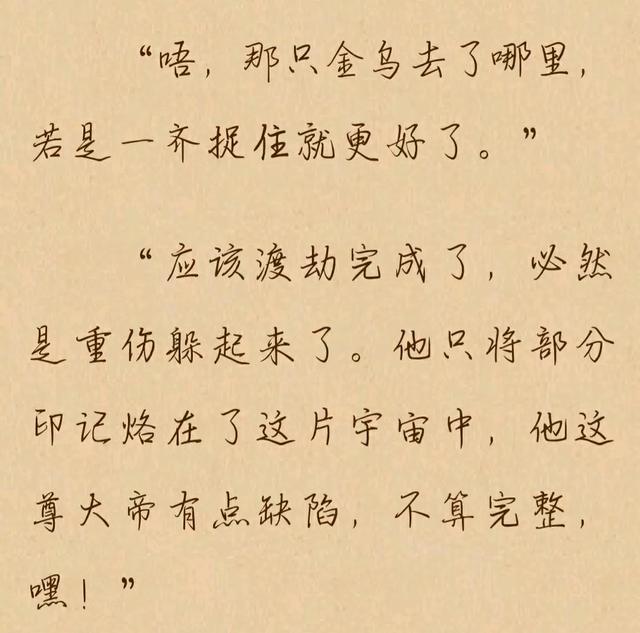 “唔，那只金乌去了哪里，
若是一齐捉住就更好了。”
“应该渡劫完成了，必然
是重伤躲起来了。他只将部分
印记烙在了这片宇宙中，他这
尊大帝有点缺陷，不算完整，
嘿！”